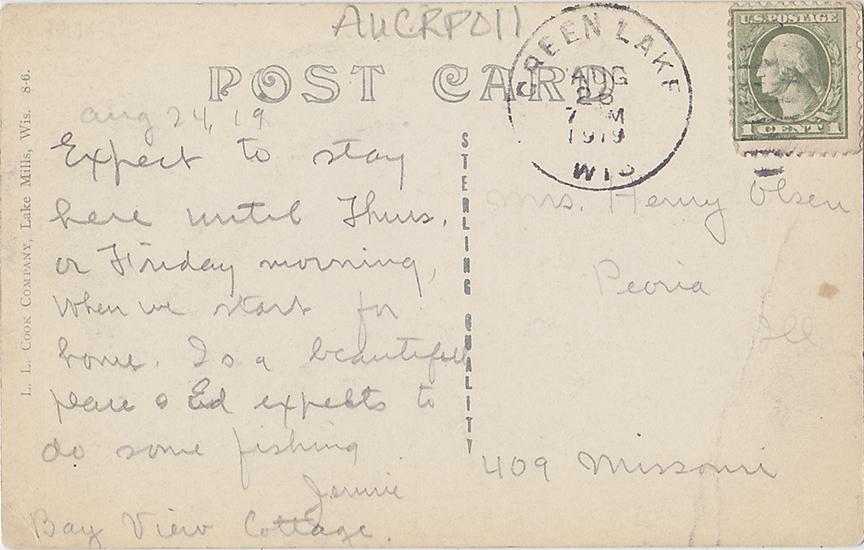 AUCRP011
POST CARD
GREEN LAKE
AUG
7 M
1919
WIS
U.S. POSTAGE
1 CENT 1
L. L. COOK COMPANY, Lake Mills, Wis. 8-6.
STERLING QUALITY
aug 24, 19
Expect to stay
here until Thurs.
or Friday morning,
when we start for
home. Is a beautiful
place & Ed expects to
do some fishing
Jennie
Bay View Cottage.
Mrs. Henry Olsen
Peoria
Ill
409 Missouri